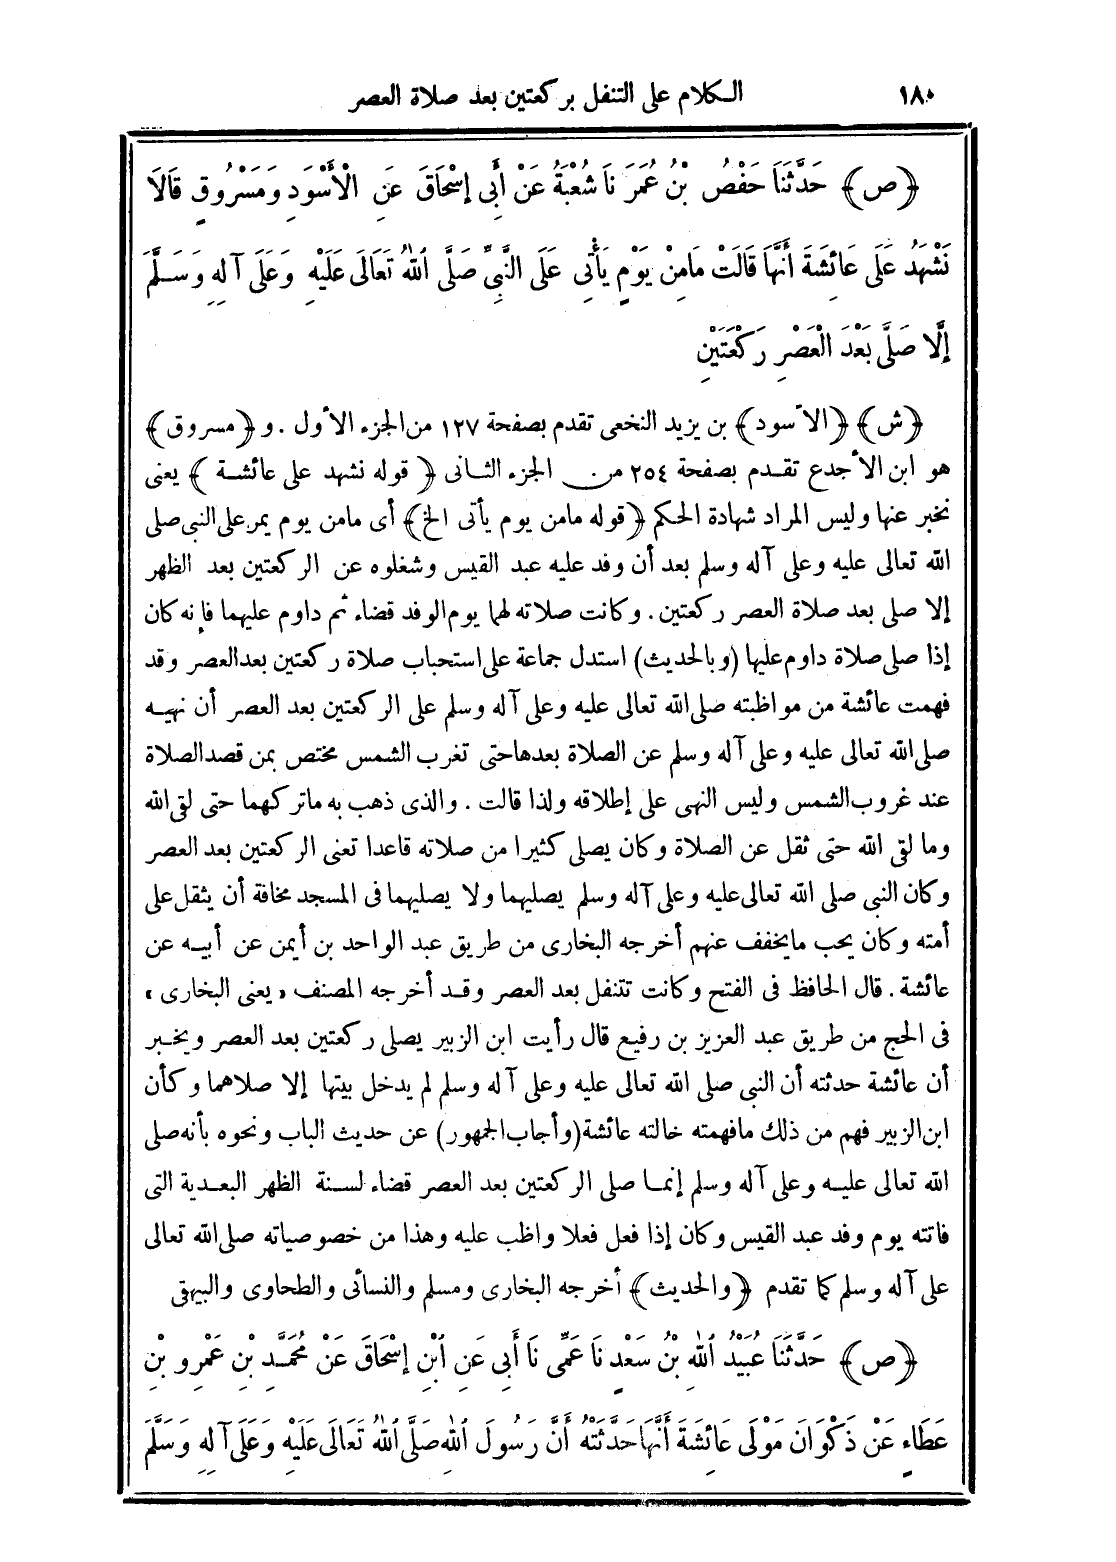 ١٨٠ الكلام على التنفل بركعتين بعد صلاة العصر
﴿ص﴾ حَدَّثَنَا حَفْصُ بْنُ عُمَرَ نَا شُعْبَةُ عَنْ أَبِى إِسْحَاقَ عَنِ الْأَسْوَدِ وَمَسْرُوقٍ قَالَا
نَشْهَدُ عَلَى عَائِشَةَ أَنَّهَا قَالَتْ مَامِنْ يَوْمٍ يَأْتِى عَلَى النَّبِىِّ صَلَّى اللهُ تَعَالَى عَلَيْهِ وَعَلَى آلِهِ وَسَلَّمَ
إِلَّا صَلَّى بَعْدَ الْعَصْرِ رَكْعَتَيْنِ
﴿ش﴾ ﴿الأسود﴾ بن يزيد النخعى تقدم بصفحة ١٢٧ من الجزء الأول . و﴿مسروق﴾
هو ابن الأجدع تقدم بصفحة ٢٥٤ من الجزء الثانى ﴿قوله نشهد على عائشة﴾ يعنى
نخبر عنها وليس المراد شهادة الحكم ﴿قوله مامن يوم يأتى الخ﴾ أى مامن يوم يمر على النبى صلى
الله تعالى عليه وعلى آله وسلم بعد أن وفد عليه عبد القيس وشغلوه عن الركعتين بعد الظهر
إلا صلى بعد صلاة العصر ركعتين . وكانت صلاته لهما يوم الوفد قضاء ثم داوم عليهما فإنه كان
إذا صلى صلاة داوم عليها (وبالحديث) استدل جماعة على استحباب صلاة ركعتين بعد العصر وقد
فهمت عائشة من مواظبته صلى الله تعالى عليه وعلى آله وسلم على الركعتين بعد العصر أن نهيه
صلى الله تعالى عليه وعلى آله وسلم عن الصلاة بعدها حتى تغرب الشمس مختص بمن قصد الصلاة
عند غروب الشمس وليس النهى على إطلاقه ولذا قالت . والذى ذهب به ماتركهما حتى لقى الله
وما لقى الله حتى ثقل عن الصلاة وكان يصلى كثيرا من صلاته قاعدا تعنى الركعتين بعد العصر
وكان النبى صلى الله تعالى عليه وعلى آله وسلم يصليهما ولا يصليهما فى المسجد مخافة أن يثقل على
أمته وكان يحب مايخفف عنهم أخرجه البخارى من طريق عبد الواحد بن أيمن عن أبيه عن
عائشة . قال الحافظ فى الفتح وكانت تتنفل بعد العصر وقد أخرجه المصنف «يعنى البخارى»
فى الحج من طريق عبد العزيز بن رفيع قال رأيت ابن الزبير يصلى ركعتين بعد العصر ويخبر
أن عائشة حدثته أن النبى صلى الله تعالى عليه وعلى آله وسلم لم يدخل بيتها إلا صلاهما وكأن
ابن الزبير فهم من ذلك مافهمته خالته عائشة (وأجاب الجمهور) عن حديث الباب ونحوه بأنه صلى
الله تعالى عليه وعلى آله وسلم إنما صلى الركعتين بعد العصر قضاء لسنة الظهر البعدية التى
فاتته يوم وفد عبد القيس وكان إذا فعل فعلا واظب عليه وهذا من خصوصياته صلى الله تعالى
على آله وسلم كما تقدم ﴿والحديث﴾ أخرجه البخارى ومسلم والنسائى والطحاوى والبيهقى
﴿ص﴾ حَدَّثَنَا عُبَيْدُ اللهِ بْنُ سَعْدٍ نَا عَمِّى نَا أَبِى عَنِ ابْنِ إِسْحَاقَ عَنْ مُحَمَّدِ بْنِ عَمْرِو بْنِ
عَطَاءٍ عَنْ ذَكْوَانَ مَوْلَى عَائِشَةَ أَنَّهَا حَدَّثَتْهُ أَنَّ رَسُولَ اللهِ صَلَّى اللهُ تَعَالَى عَلَيْهِ وَعَلَى آلِهِ وَسَلَّمَ